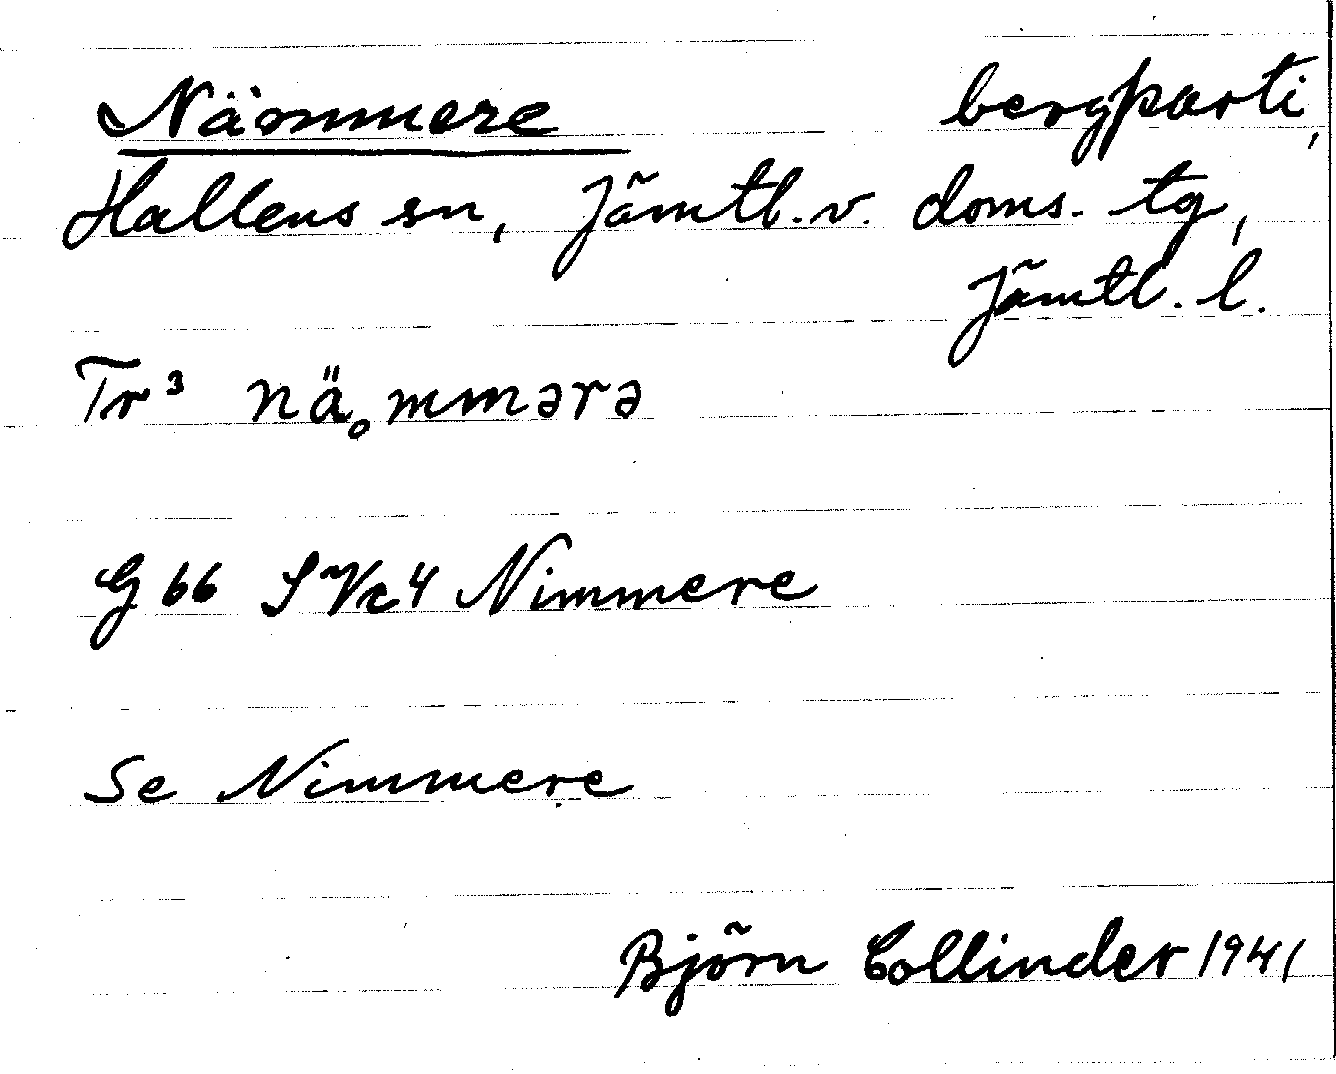 Nämmere bergparti,
Hallens sn, Jämtl. v. doms. tg,
Jämtl. l.
Tr³ nḁ̈mmərə
G 66 Nimmere
Se Nimmere
Björn Collinder 1941